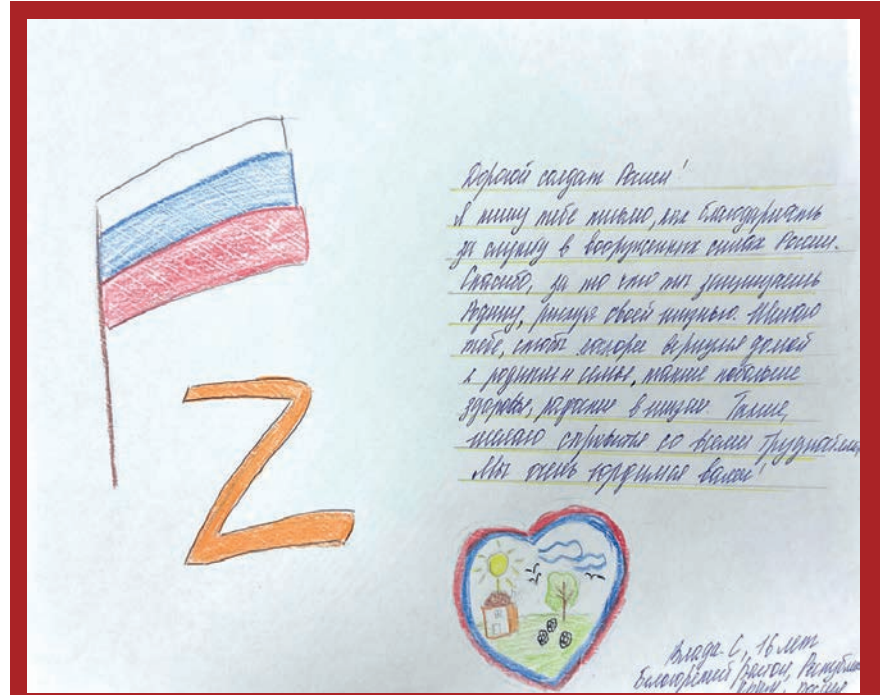 Z
Дорогой солдат России!
Я пишу тебе письмо, как благодарность
за службу в вооруженных силах России.
Спасибо, за то что ты защищаешь
Родину, рискуя своей жизнью. Желаю
тебе, чтобы скорее вернулся домой
к родителям и семье, также побольше
здоровья, радости в жизни. Также,
желаю справится со всеми трудностями,
Мы очень гордимся вами!
Влада С, 16 лет
Белогорский район, Республика
Крым, Россия